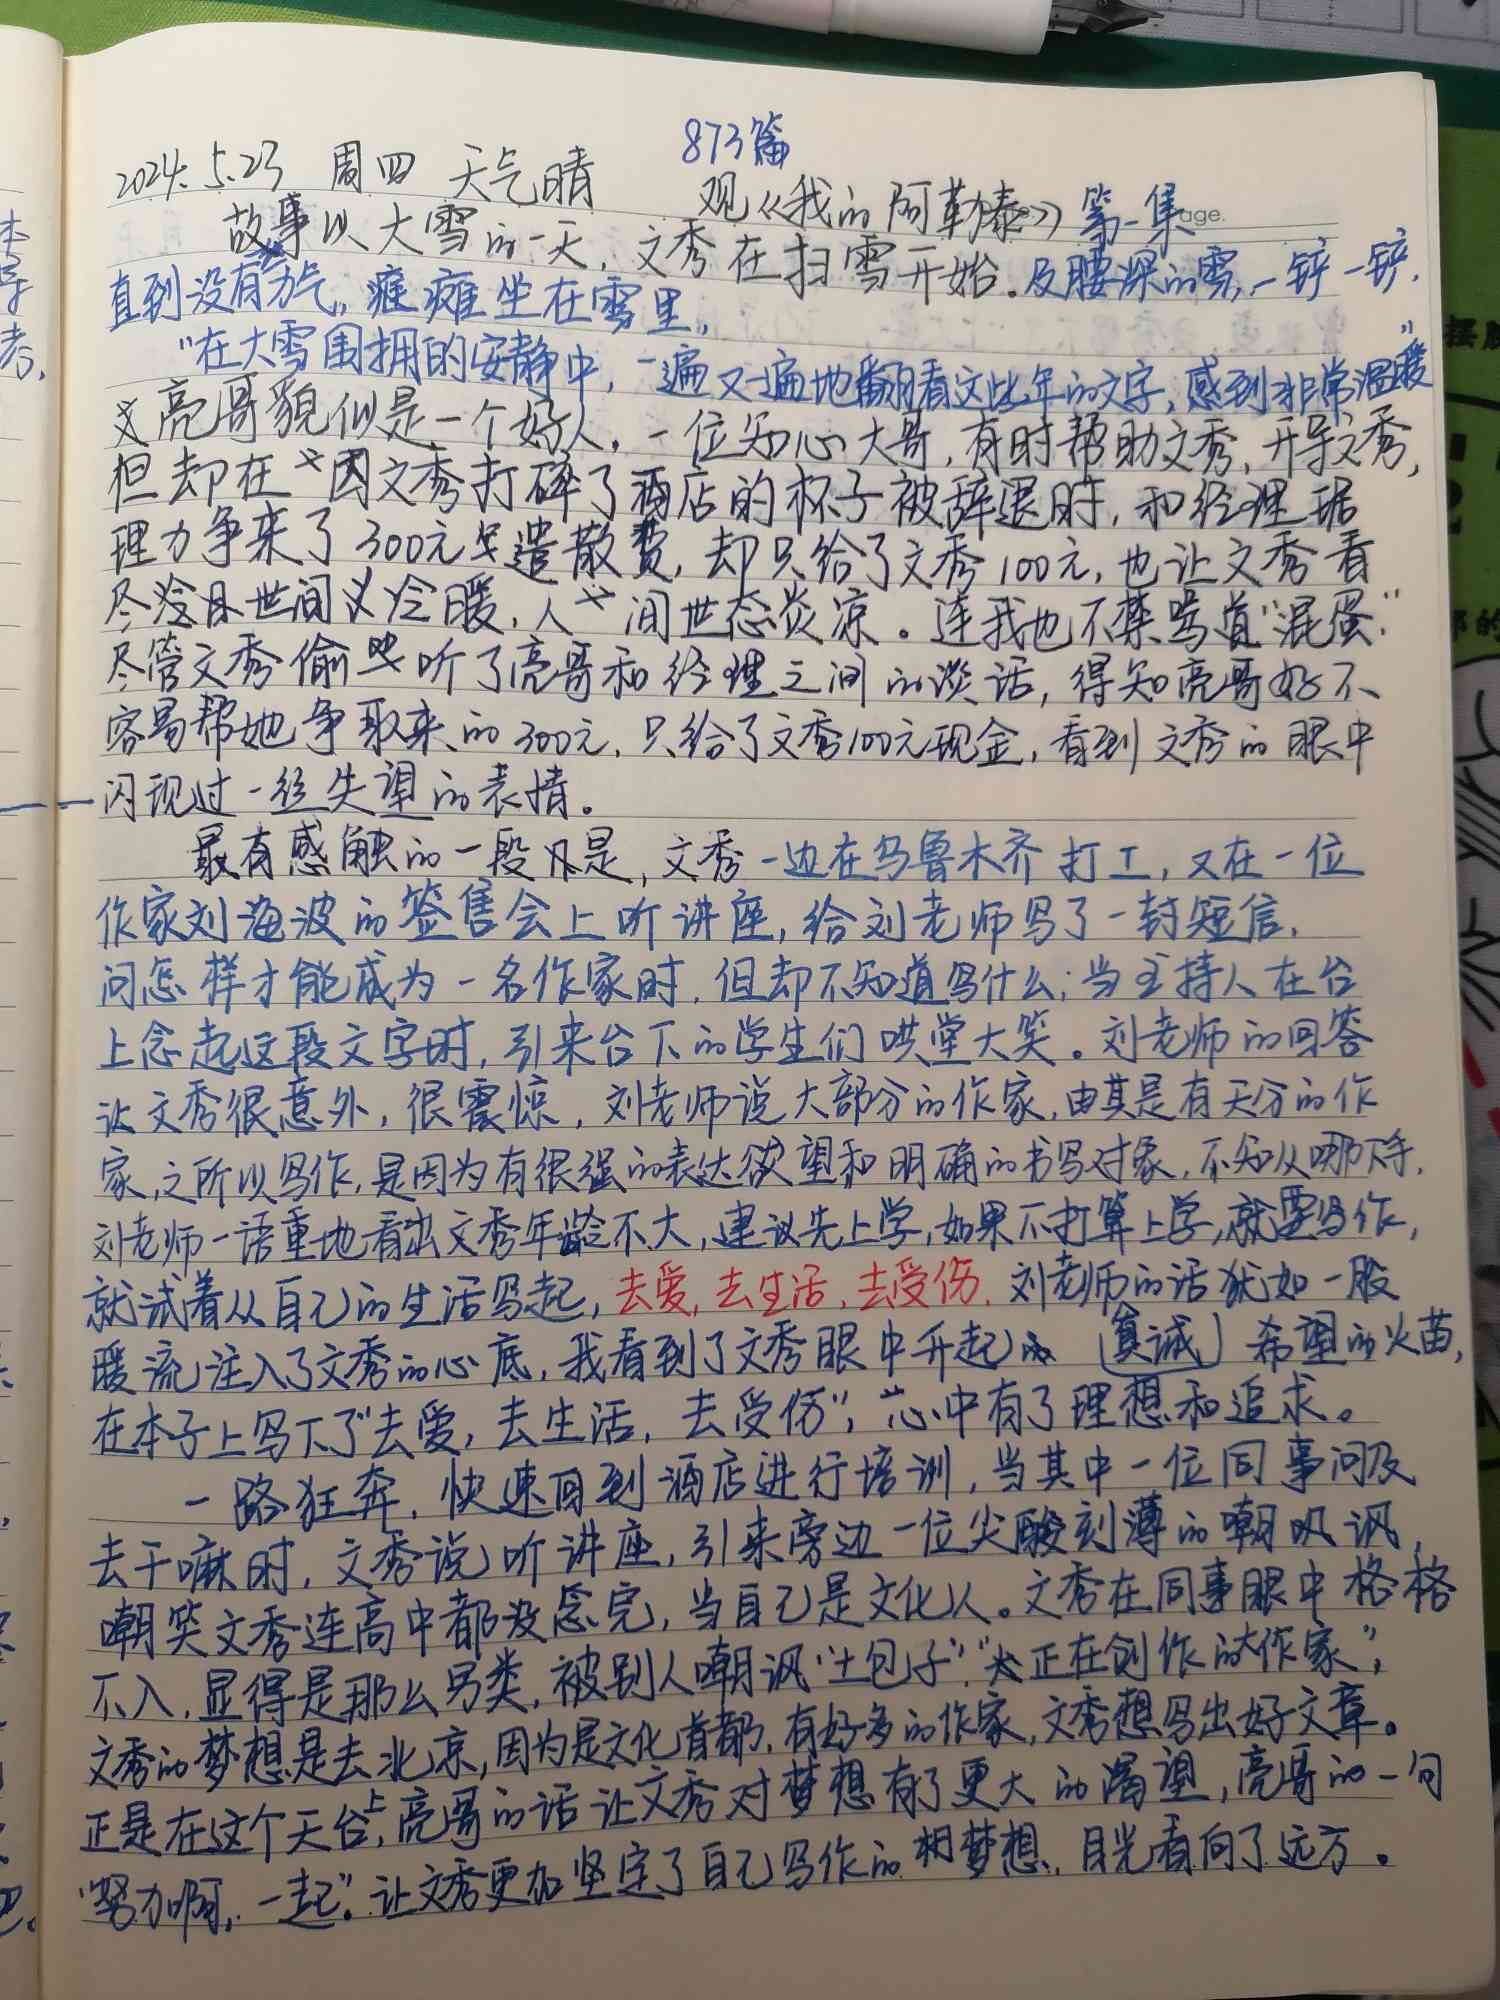 873篇
2024.5.23 周四 天气晴 观《我的阿勒泰》第一集
age.
故事以大雪的一天,文秀在扫雪开始。及腰深的雪,一铲一铲,
直到没有力气,瘫瘫坐在雪里。
"在大雪围拥的安静中,一遍又一遍地翻看这些年的文字,感到非常温暖"
亮哥貌似是一个好人,一位知心大哥,有时帮助文秀,开导文秀,
但却在因文秀打碎了酒店的杯子被辞退时,和经理据
理力争来了300元遣散费,却只给了文秀100元,也让文秀看
尽世间冷暖,人间世态炎凉。连我也不禁骂道"混蛋"
尽管文秀偷听了亮哥和经理之间的谈话,得知亮哥好不
容易帮她争取来的300元,只给了文秀100元现金,看到文秀的眼中
闪现过一丝失望的表情。
最有感触的一段是,文秀一边在乌鲁木齐打工,又在一位
作家刘海波的签售会上听讲座,给刘老师写了一封短信,
问怎样才能成为一名作家时,但却不知道写什么;当主持人在台
上念起这段文字时,引来台下的学生们哄堂大笑。刘老师的回答
让文秀很意外,很震惊,刘老师说大部分的作家,由其是有天分的作
家,之所以写作,是因为有很强的表达欲望和明确的书写对象,不知从哪下手,
刘老师一语重地看出文秀年龄不大,建议先上学,如果不打算上学,就要写作,
就试着从自己的生活写起,去爱,去生活,去受伤,刘老师的话犹如一股
暖流注入了文秀的心底,我看到了文秀眼中升起(真诚)希望的火苗,
在本子上写下了"去爱,去生活,去受伤",心中有了理想和追求。
一路狂奔,快速回到酒店进行培训,当其中一位同事问及
去干嘛时,文秀说听讲座,引来旁边一位尖酸刻薄的嘲讽,
嘲笑文秀连高中都没念完,当自己是文化人。文秀在同事眼中格格
不入,显得是那么另类,被别人嘲讽"土包子""正在创作的大作家",
文秀的梦想是去北京,因为是文化首都,有好多的作家,文秀想写出好文章。
正是在这个天台上,亮哥的话让文秀对梦想有了更大的渴望,亮哥的一句
"努力啊,一起"。让文秀更加坚定了自己写作的梦想,目光看向了远方。